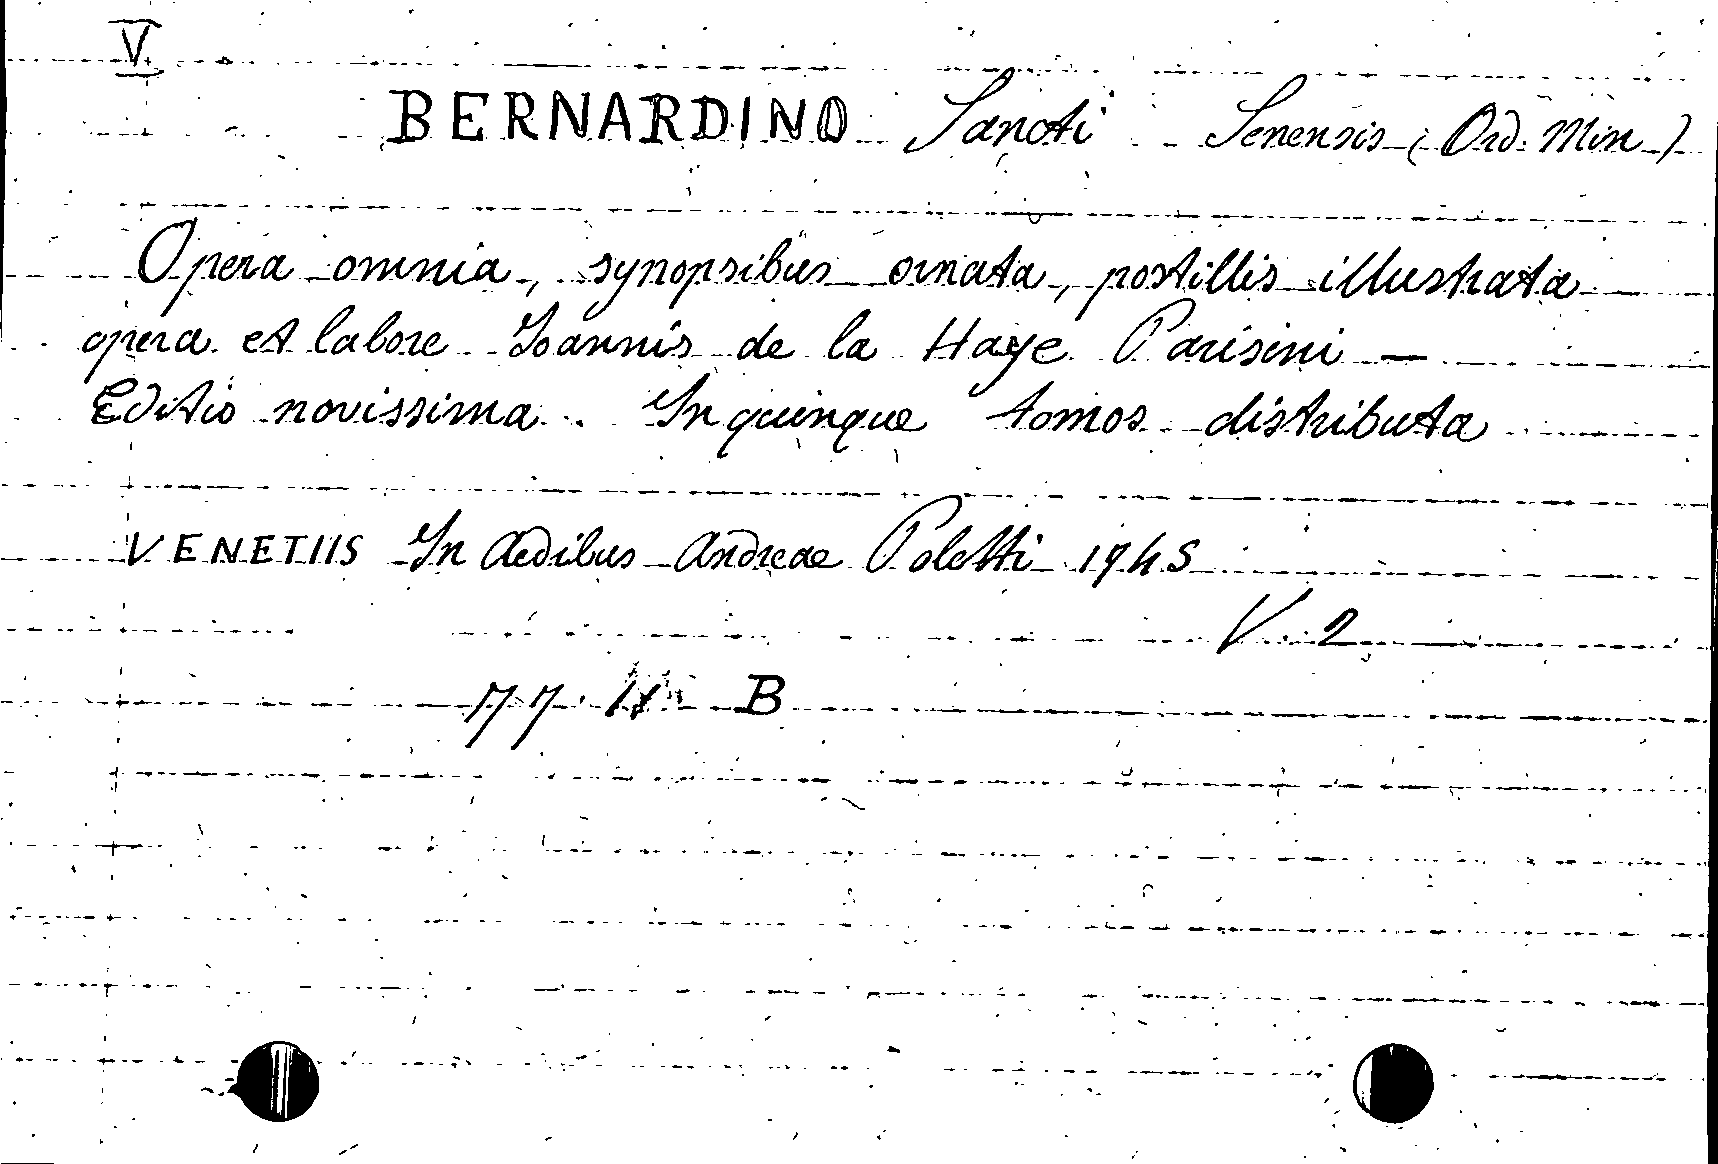 V
BERNARDINO Sancti Senensis (Ord. Min.)
Opera omnia, synopsibus ornata, postillis illustrata
opera et labore Joannis de la Haye Parisini —
Editio novissima. In quinque tomos distributa
VENETIIS In Aedibus Andreae Poletti 1745
V. 2
77. B